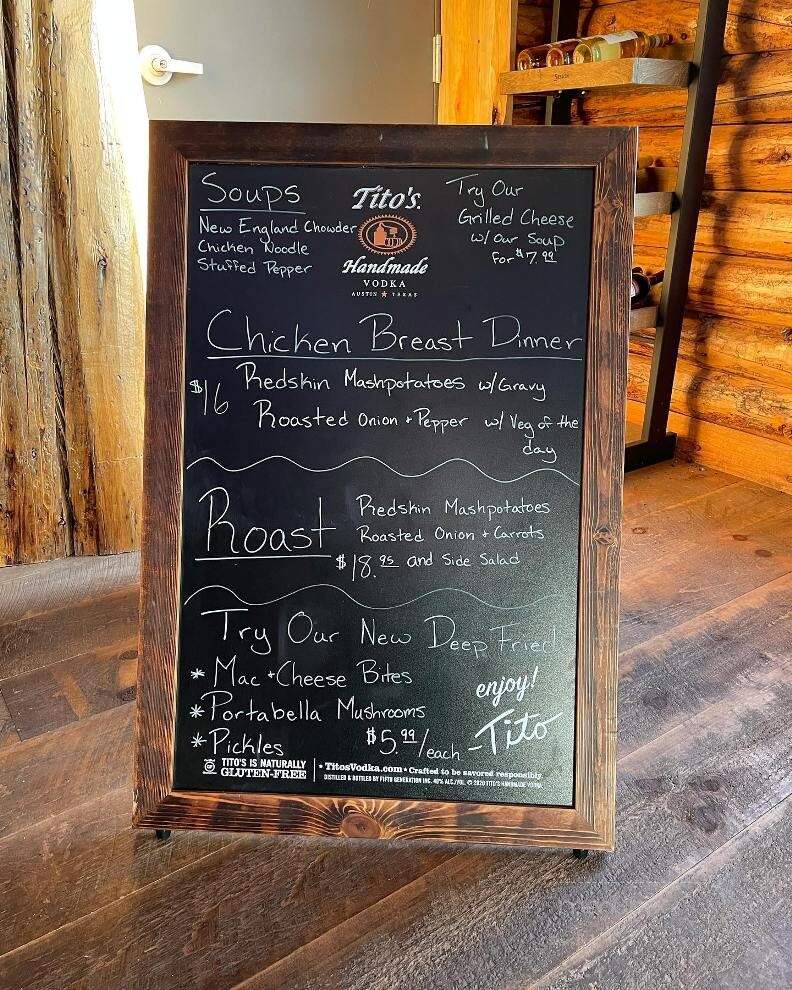 Soups
New England Chowder
Chicken Noodle
Stuffed Pepper
Tito's
Handmade
VODKA
AUSTIN ★ TEXAS
Try Our
Grilled Cheese
w/ Our Soup
For $7.99
Chicken Breast Dinner
$16 Redskin Mashpotatoes w/Gravy
Roasted Onion + Pepper w/ Veg of the
day
Roast
Redskin Mashpotatoes
Roasted Onion + Carrots
$18.95 and Side Salad
Try Our New Deep Fried
* Mac + Cheese Bites
* Portabella Mushrooms
* Pickles $5.99/each
enjoy!
-Tito
TITO'S IS NATURALLY
GLUTEN-FREE
• TitosVodka.com • Crafted to be savored responsibly.
DISTILLED & BOTTLED BY FIFTH GENERATION INC. 40% ALC./VOL. © 2020 TITO'S HANDMADE VODKA